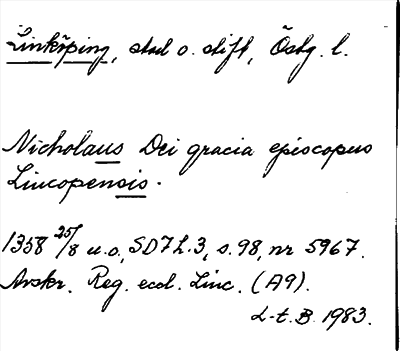 Linköping, stad o. stift, Östg. l.
Nicholaus Dei gracia episcopus
Lincopensis.
1358 25/8 u.o., SD 7 h.3, s.98, nr 5967.
Avskr. Reg. eccl. Linc. (A9).
L-t.B. 1983.